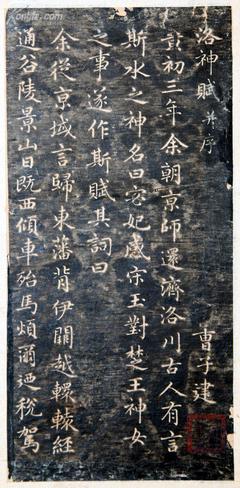 洛神賦 并序
曹子建
黃初三年余朝京師還濟洛川古人有言
斯水之神名曰宓妃感宋玉對楚王神女
之事遂作斯賦其詞曰
余從京域言歸東藩背伊闕越轘轅經
通谷陵景山日既西傾車殆馬煩爾迺稅駕